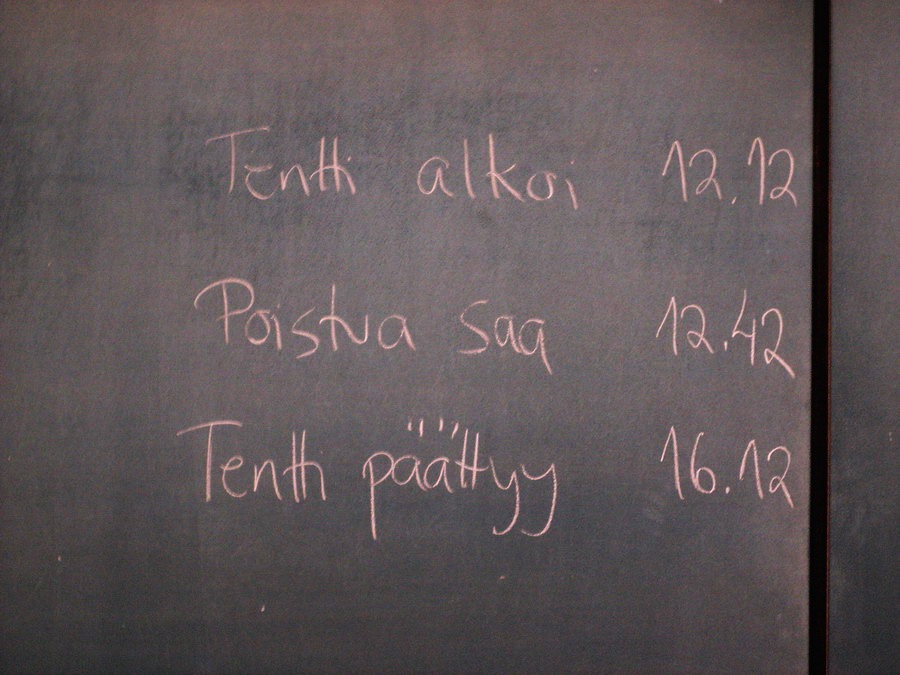 Tentti alkoi 12.12
Poistua saa 12.42
Tentti päättyy 16.12